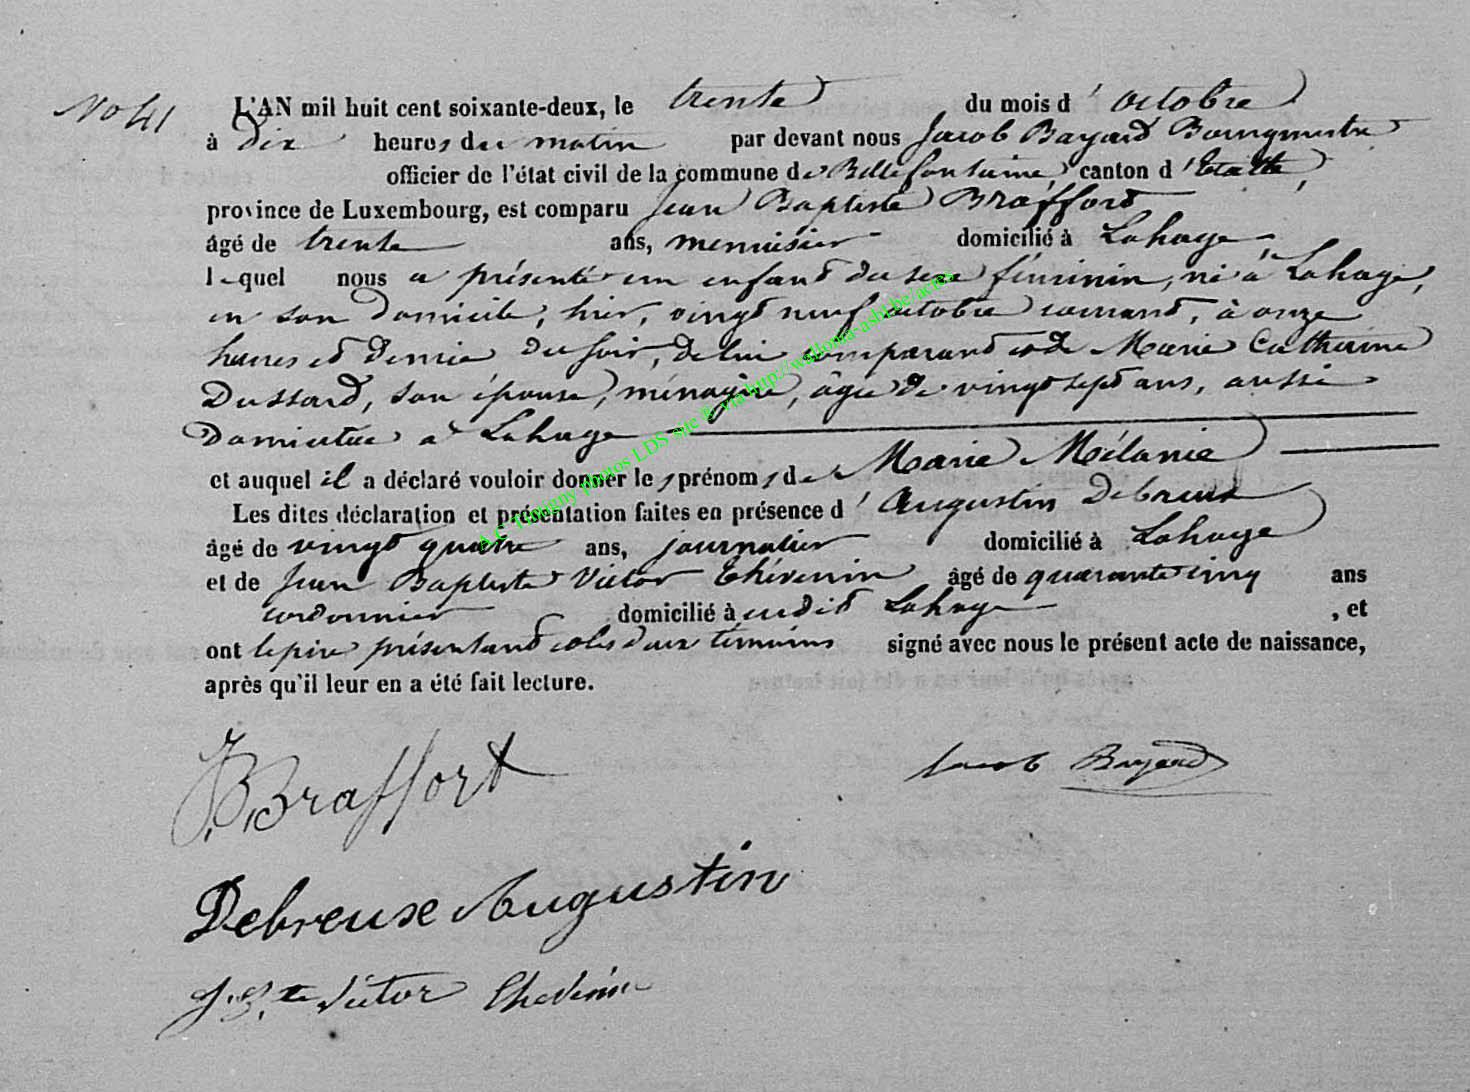 No 41
L'AN mil huit cent soixante-deux, le trente du mois d'octobre
à dix heures du matin par devant nous Jacob Bayard Bourgmestre
officier de l'état civil de la commune de Bellefontaine, canton d'Etalle,
province de Luxembourg, est comparu Jean Baptiste Braffort
âgé de trente ans, menuisier domicilié à Lahage,
lequel nous a présenté un enfant du sexe féminin, né à Lahage,
en son domicile, hier, vingt neuf octobre courant, à onze
heures et demie du soir, de lui comparant et de Marie Catherine
Dussard, son épouse, ménagère, âgée de vingt sept ans, aussi
domiciliée à Lahage
et auquel il a déclaré vouloir donner les prénoms de Marie Mélanie
Les dites déclaration et présentation faites en présence d'Augustin Debreux
âgé de vingt quatre ans, journalier domicilié à Lahage
et de Jean Baptiste Victor Thévenin âgé de quarante cinq ans
cordonnier domicilié à audit Lahage , et
ont le père présentant et les deux témoins signé avec nous le présent acte de naissance,
après qu'il leur en a été fait lecture.
J.B. Braffort
Jacob Bayard
Debreuxe Augustin
J.B.te Victor Thevenin
A.C. Tintigny photos LDS site ® via http://wallonia-asbl.be/actes